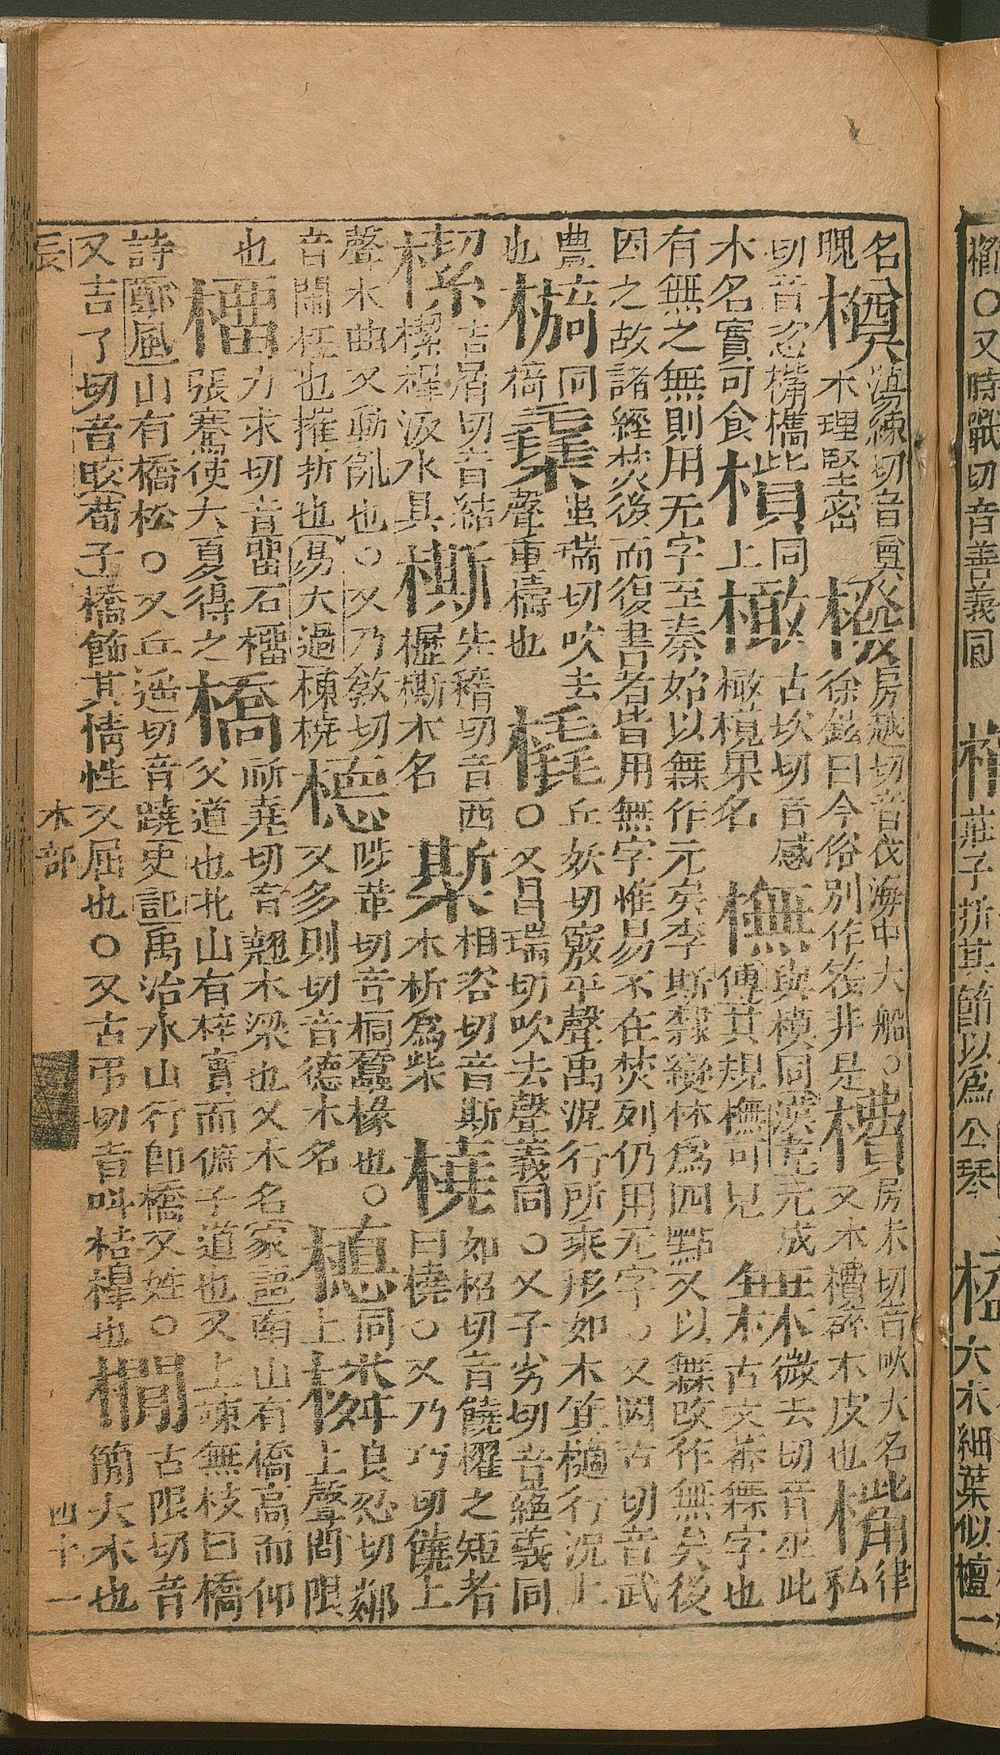 〇又時戰切音善義同 莊子折其節以為公琴 大木細葉似檀一
橂滇練切音奠木理堅密橃房越切音伐海中大船。徐鉉曰今俗別作筏非是 房未切音吠木名此又木槽辟木皮也 律私
切音忽 木名實可食 同上橄古坎切音感橄欖果名橅與模同漢 元成傅其規橅可見橆微夫切音巫此古文蕃橆字也
有無之無則用无字至秦始以橆作元矣李斯隸變林為四點又以橆改作無矣後
因之故諸經焚後而復書者皆用無字惟易不在焚列仍用无字○又罔古切音武
豊也 同 蚩瑞切吹去聲重擣也橇丘妖切竅平聲禹泥行所乘形如木箕擿行泥上○又昌瑞切吹去聲義同○又子劣切音絕義同
吉屑切音結 槔汲水具 先稽切音西櫪 木名 相咨切音斯木析為柴橈如招切音饒櫂之短者曰橈○又乃巧切饒上
聲木曲又動亂也○又乃敎切音鬧枉也摧折也易大過棟橈 陟革切音 蠶椽也。又多則切音德木名 同上橉良忍切鄰上聲門限
也橊力求切音畱石橊張騫使大夏得之橋祈堯切音翹木梁也又木名家語南山有橋高而仰父道也北山有梓實而俯子道也又上竦無枝曰橋
詩鄭風山有橋松○又丘遥切音蹺史記禹治水山行卽橋又姓○
又吉了切音晈荀子橋飾其情性又屈也○又古弔切音呌桔橰也橌古限切音簡大木也
辰 木部 四十一